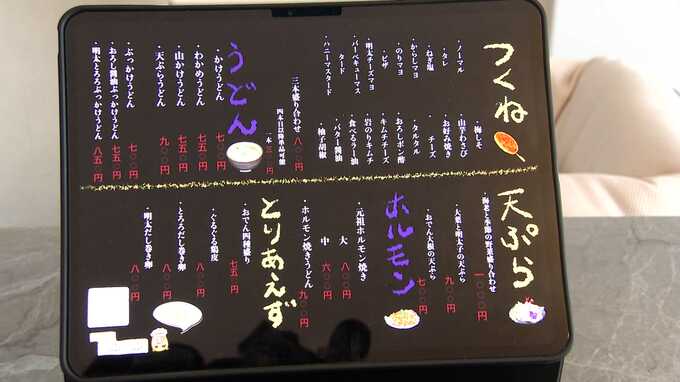 つくね
・ノーマル
・タレ
・ねぎ塩
・からしマヨ
・のりマヨ
・ピザ
・明太チーズマヨ
・バーベキューマスタード
・ハニーマスタード
・梅しそ
・山芋わさび
・お好み焼き
・チーズ
・タルタル
・おろしポン酢
・キムチチーズ
・岩のりキムチ
・食べるラー油
・バター醤油
・柚子胡椒
三本盛り合わせ 八〇〇円
四本目以降単品可能
うどん
・かけうどん 七〇〇円
・わかめうどん 七五五円
・山かけうどん 七五五円
・天ぷらうどん 九〇〇円
・ぶっかけうどん 七〇〇円
・おろし醤油ぶっかけうどん 八五五円
・明太とろろぶっかけうどん 八五〇円
天ぷら
・海老と季節の野菜盛り合わせ 一〇〇〇円
・大葉と明太子の天ぷら 九〇〇円
・おでん大根の天ぷら 七〇〇円
ホルモン
・元祖ホルモン焼き
大 八〇〇円
中 六〇〇円
・ホルモン焼きうどん 九〇〇円
とりあえず
・おでん四種盛り 七五五円
・ぐるぐる鶏皮 八〇〇円
・とろろだし巻き卵 八〇〇円
・明太だし巻き卵 八〇〇円